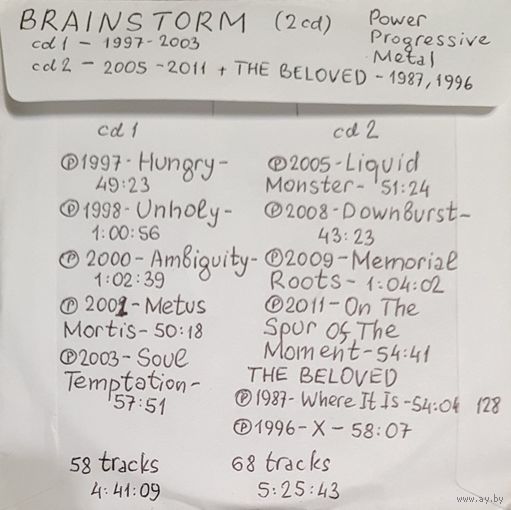 BRAINSTORM (2cd) Power
cd1 - 1997-2003 Progressive
Metal
cd2 - 2005-2011 + THE BELOVED - 1987, 1996
cd1
Ⓟ1997-Hungry-
49:23
Ⓟ1998-Unholy-
1:00:56
Ⓟ2000-Ambiguity-
1:02:39
Ⓟ2001-Metus
Mortis-50:18
Ⓟ2003-Soul
Temptation-
57:51
58 tracks
4:41:09
cd2
Ⓟ2005-Liquid
Monster- 51:24
Ⓟ2008-Downburst-
43:23
Ⓟ2009-Memorial
Roots- 1:04:02
Ⓟ2011-On The
Spur Of The
Moment-54:41
THE BELOVED
Ⓟ1987-Where It Is-54:04 128
Ⓟ1996-X-58:07
68 tracks
5:25:43
www.ay.by